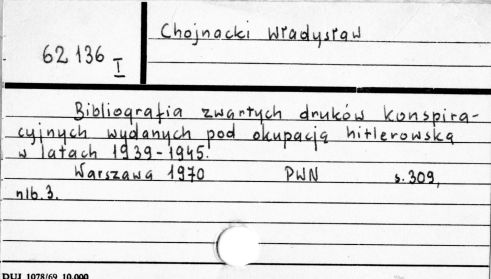 Chojnacki Władysław
62 136 I
Bibliografia zwartych druków konspira-
cyjnych wydanych pod okupacją hitlerowską
w latach 1939-1945.
Warszawa 1970 PWN s. 309,
nlb. 3.
DUJ 1078/69 10.000